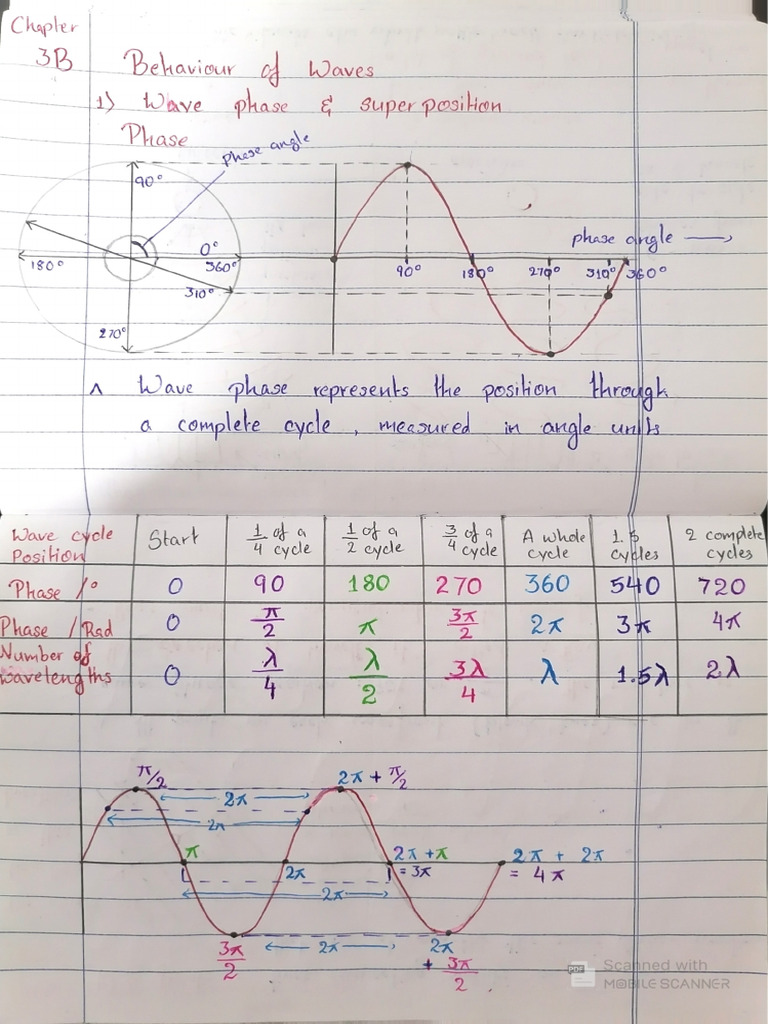 Chapter
3B
Behaviour of Waves
1) Wave phase & superposition
Phase
phase angle
90°
0°
180°
360°
310°
270°
phase angle →
90° 180° 270° 310° 360°
^ Wave phase represents the position through
a complete cycle , measured in angle units
Wave cycle Position | Start | 1/4 of a cycle | 1/2 of a cycle | 3/4 of a cycle | A whole cycle | 1.5 cycles | 2 complete cycles
Phase /° | 0 | 90 | 180 | 270 | 360 | 540 | 720
Phase / Rad | 0 | π/2 | π | 3π/2 | 2π | 3π | 4π
Number of wavelengths | 0 | λ/4 | λ/2 | 3λ/4 | λ | 1.5λ | 2λ
π/2
2π + π/2
2π
2π
π
2π + π
= 3π
2π + 2π
= 4π
2π
2π
3π/2
2π
2π
+ 3π/2
PDF
Scanned with
MOBILE SCANNER